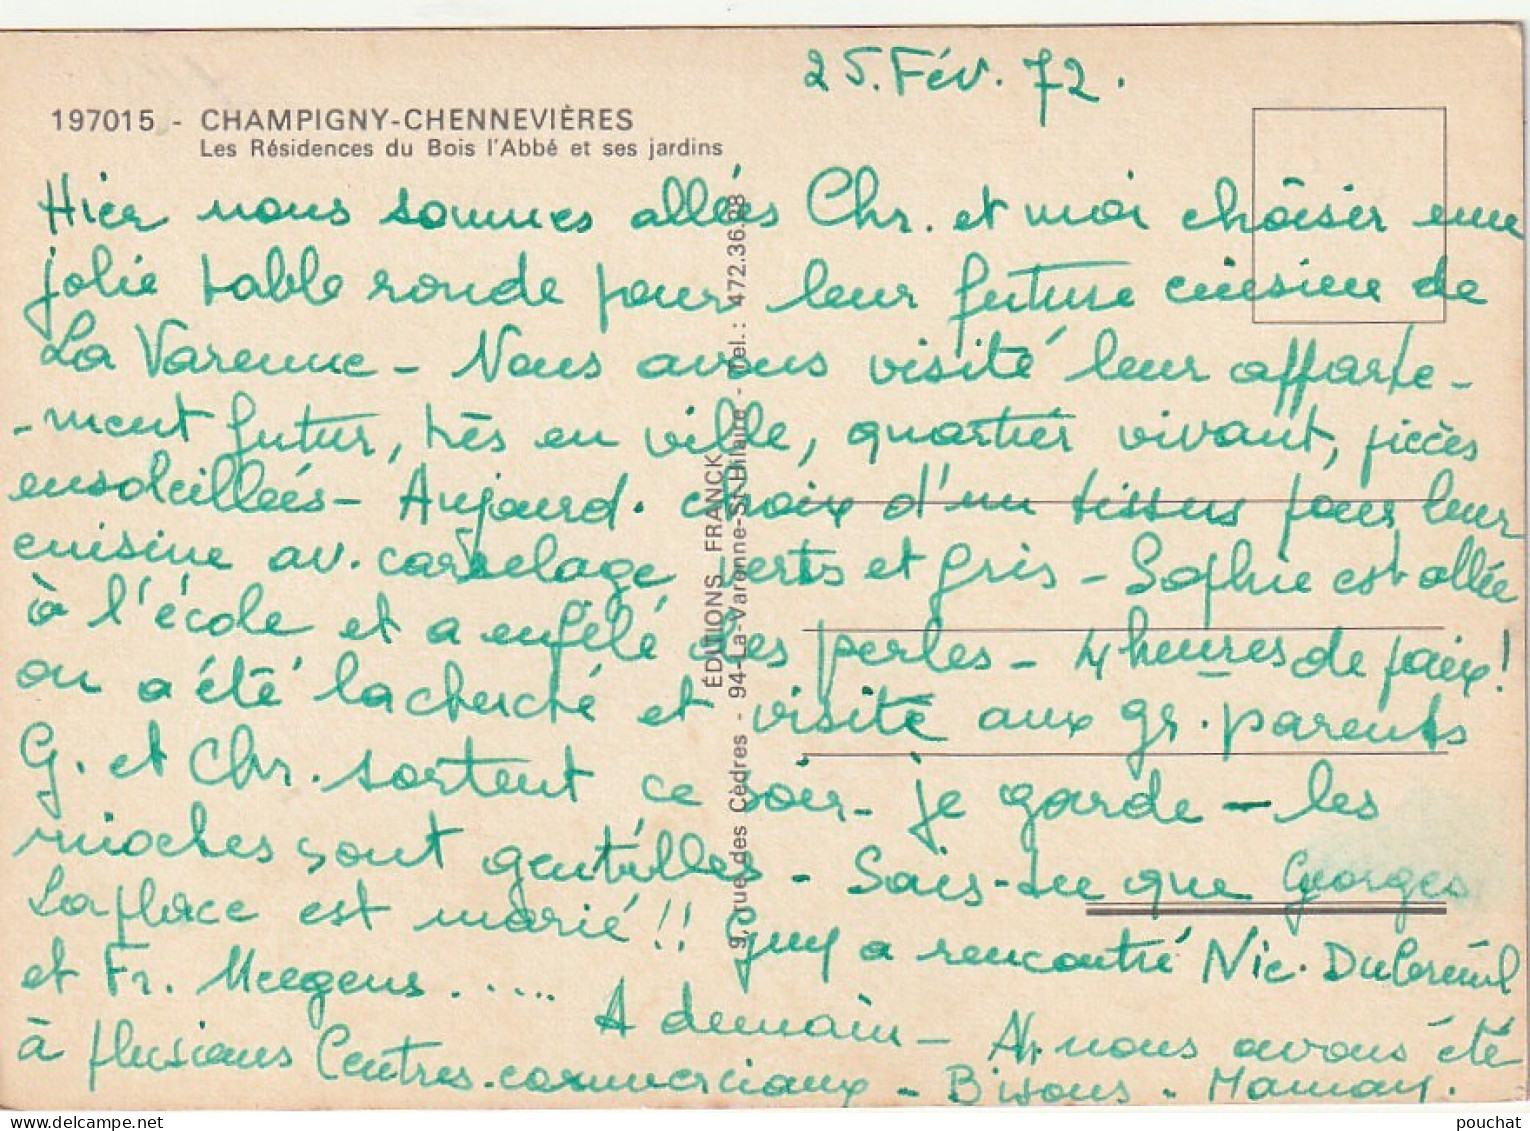 25. Fév. 72.
197015 - CHAMPIGNY-CHENNEVIÈRES
Les Résidences du Bois l'Abbé et ses jardins
Hier nous sommes allées Chr. et moi choisir une
jolie table ronde pour leur future cuisine de
La Varenne - Nous avons visité leur apparte-
-ment futur, très en ville, quartier vivant, pièces
ensoleillées - Aujourd. choix d'un tissus pour leur
cuisine av. carrelage verts et gris - Sophie est allée
à l'école et a enfilé des perles - 4 heures de paix!
on a été la cherché et visité aux gr. parents
G. et Chr. sortent ce soir - je garde - les
mioches sont gentilles - Sais-tu que Georges
Laplace est marié!! Guy a rencontré Nic. Dubreuil
et Fr. Meegens.....
A demain - Ap. nous avons été
à plusieurs Centres commerciaux - Bisous - Maman.
ÉDITIONS FRANCK
9, rue des Cèdres - 94-La-Varenne-St-Hilaire - Tel.: 472.36.98
pouchat